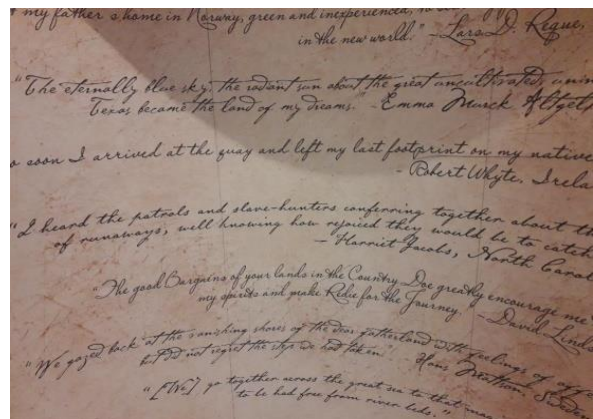 my father's home in Norway, green and inexperienced, to
in the new world." -Lars D. Reque,
"The eternally blue sky, the radiant sun about the great uncultivated
Texas became the land of my dreams. -Emma Murck Altgelt
soon I arrived at the quay and left my last footprint on my native
- Robert Whyte, Irela
"I heard the patrols and slave-hunters conferring together about th
of runaways, well knowing how rejoiced they would be to catch
- Harriet Jacobs, North Carol
"The good Bargains of your lands in the Country Doe greatly encourage me
my spirits and make Redie for the Journey. - David Linds
"We gazed back at the vanishing shores of the dear fatherland with feelings of
but did not regret the step we had taken. Hans Mattson, Sweden
"[We] go together across the great sea to that
to be had free from river